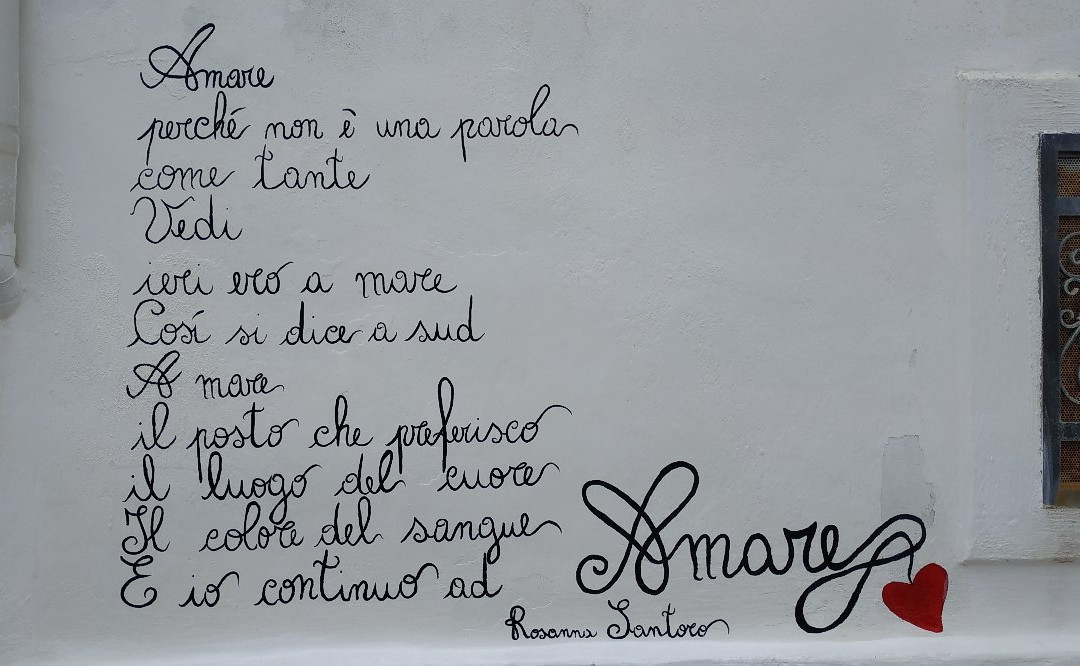 Amare
perché non è una parola
come tante
Vedi
ieri ero a mare
Così si dice a sud
A mare
il posto che preferisco
il luogo del cuore
Il colore del sangue
E io continuo ad
Amare
Rosanna Santoro